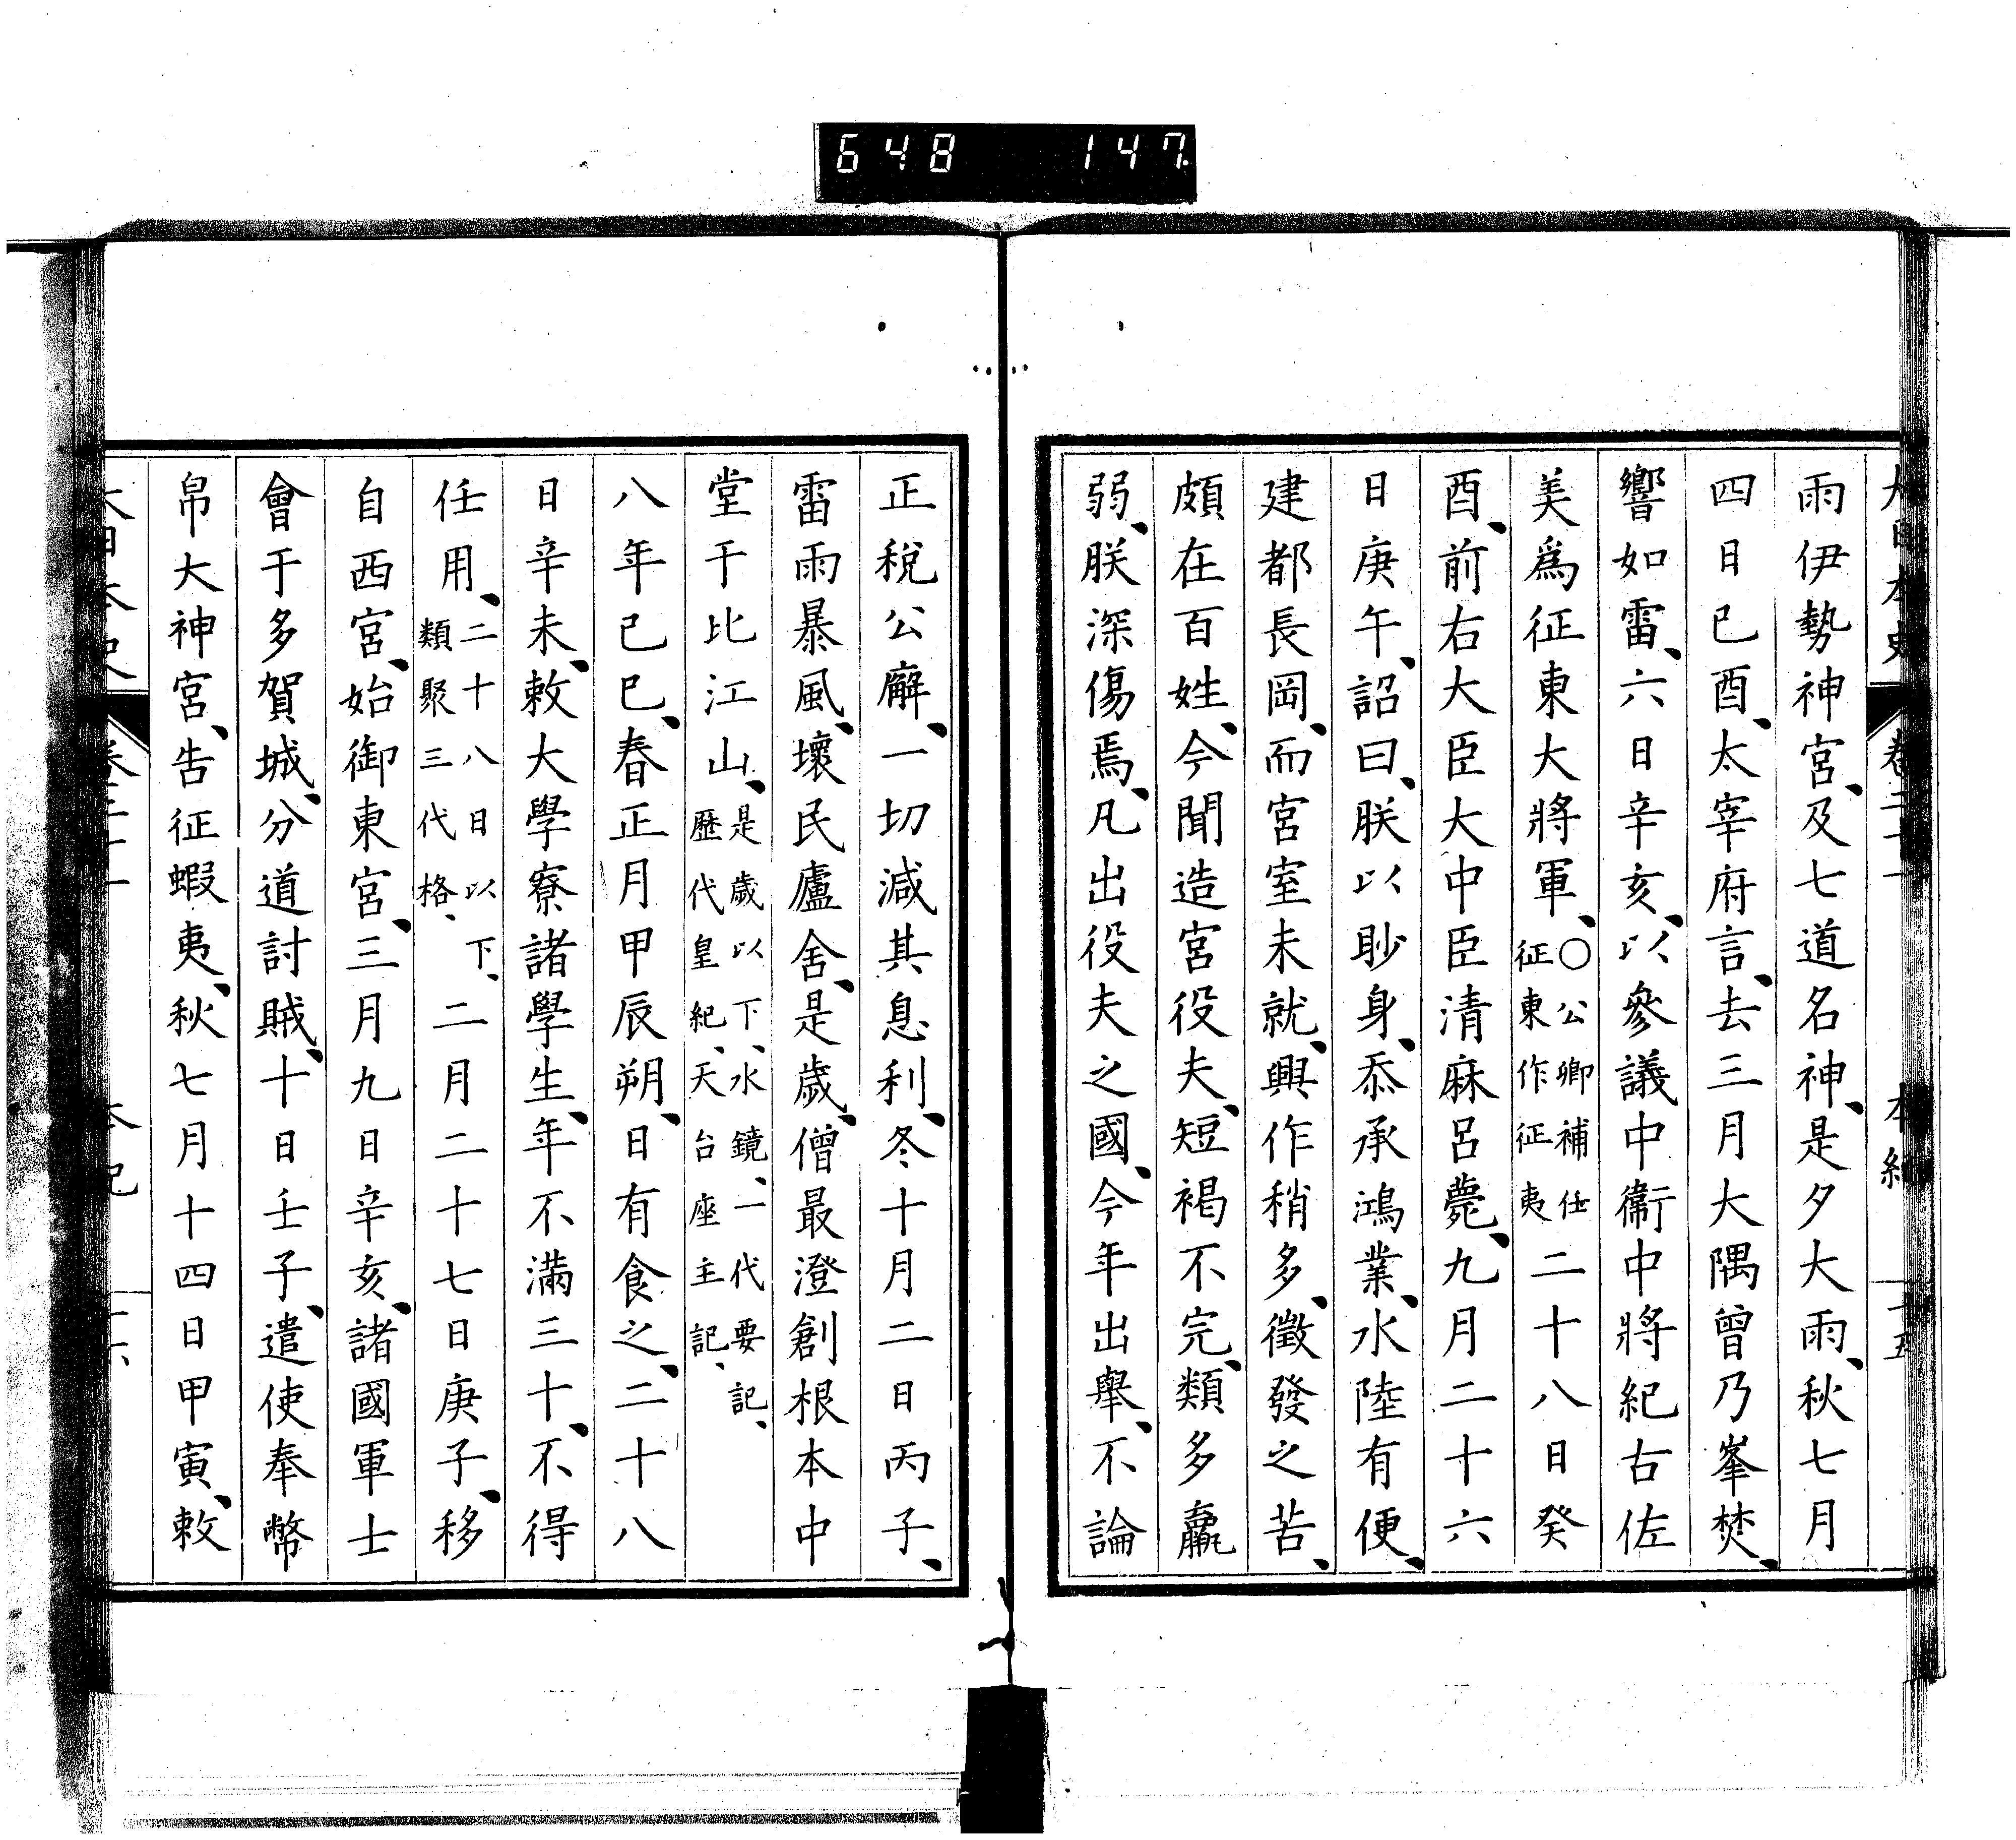 648 147
大日本史 卷二十一 本紀 十五
雨伊勢神宮、及七道名神、是夕大雨、秋七月
四日己酉、太宰府言、去三月大隅曾乃峯焚、
響如雷、六日辛亥、以參議中衞中將紀古佐
美爲征東大將軍、〇公卿補任征東作征夷二十八日癸
酉、前右大臣大中臣清麻呂薨、九月二十六
日庚午、詔曰、朕以眇身、忝承鴻業、水陸有便、
建都長岡、而宮室未就、興作稍多、徵發之苦、
頗在百姓、今聞造宮役夫、短褐不完、類多羸
弱、朕深傷焉、凡出役夫之國、今年出擧、不論
正稅公廨、一切減其息利、冬十月二日丙子、
雷雨暴風、壞民廬舍、是歲、僧最澄創根本中
堂于比江山、是歲以下、水鏡、一代要記、歷代皇紀、天台座主記、
八年己巳、春正月甲辰朔、日有食之、二十八
日辛未、敕大學寮諸學生、年不滿三十、不得
任用、二十八日以下、類聚三代格、二月二十七日庚子、移
自西宮、始御東宮、三月九日辛亥、諸國軍士
會于多賀城、分道討賊、十日壬子、遣使奉幣
帛大神宮、告征蝦夷、秋七月十四日甲寅、敕
大日本史 卷二十一 本紀 十六